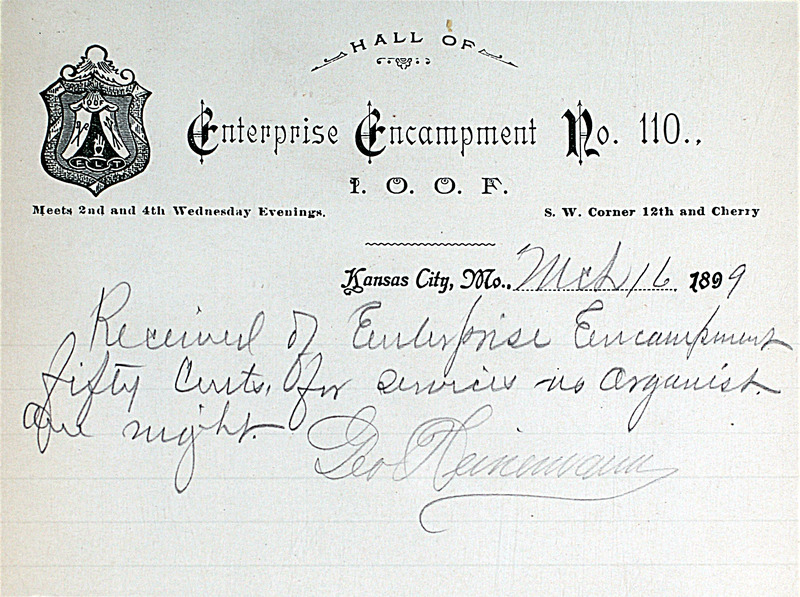 HALL OF
Enterprise Encampment No. 110.,
I. O. O. F.
IOOF
F L T
Meets 2nd and 4th Wednesday Evenings.
S. W. Corner 12th and Cherry
Kansas City, Mo., Mch 16 1899
Received of Enterprise Encampment
fifty Cents, for services as Organist.
one night.
Geo Heinemann